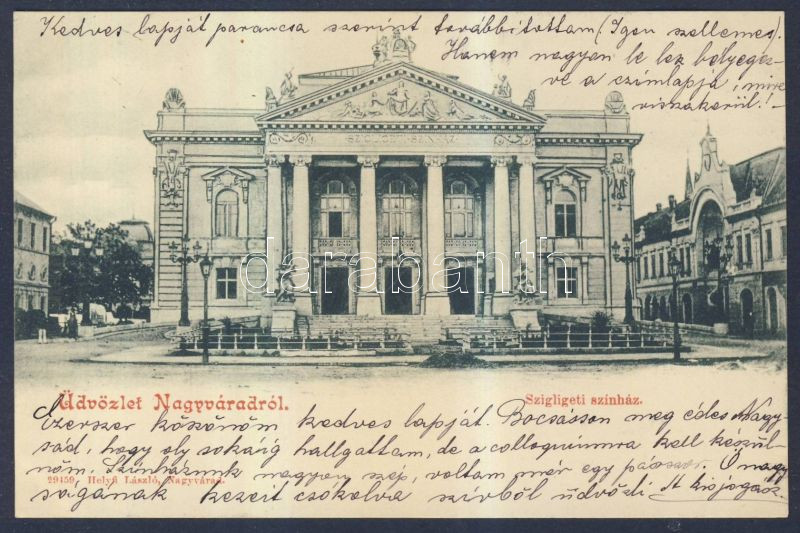 Kedves lapját parancsa szerint továbbítottam (Igen szellemes).
Hanem nagyon le lez bélyegez-
ve a czímlapja, mire
visszakerül!
SZIGLIGETI SZINHÁZ
darabanth
Üdvözlet Nagyváradról.
Szigligeti színház.
Ezerszer köszönöm kedves lapját. Bocsásson meg édes Nagy-
sád, hogy oly sokáig hallgattam, de a colloquiumra kell készül-
nöm. Színházunk nagyon szép, voltam már egy párszor. Ő nagy-
29459. Helyfi László, Nagyvárad.
ságának kezeit csókolva szívből üdvözli A kis jogász